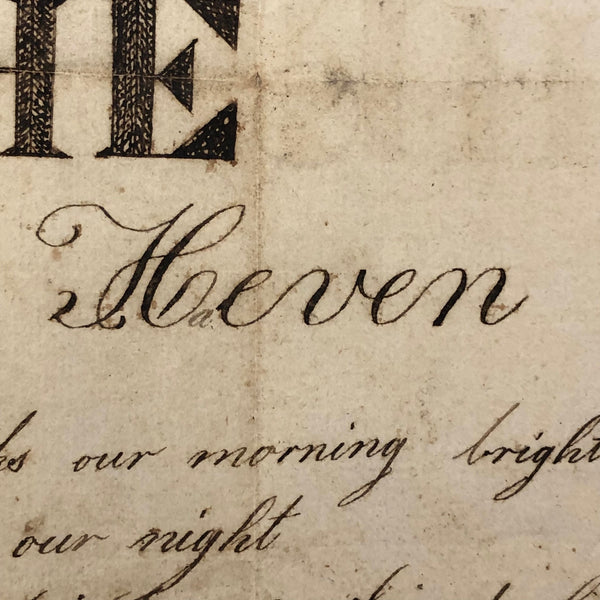 HE
Heven
a
ks our morning bright
our night